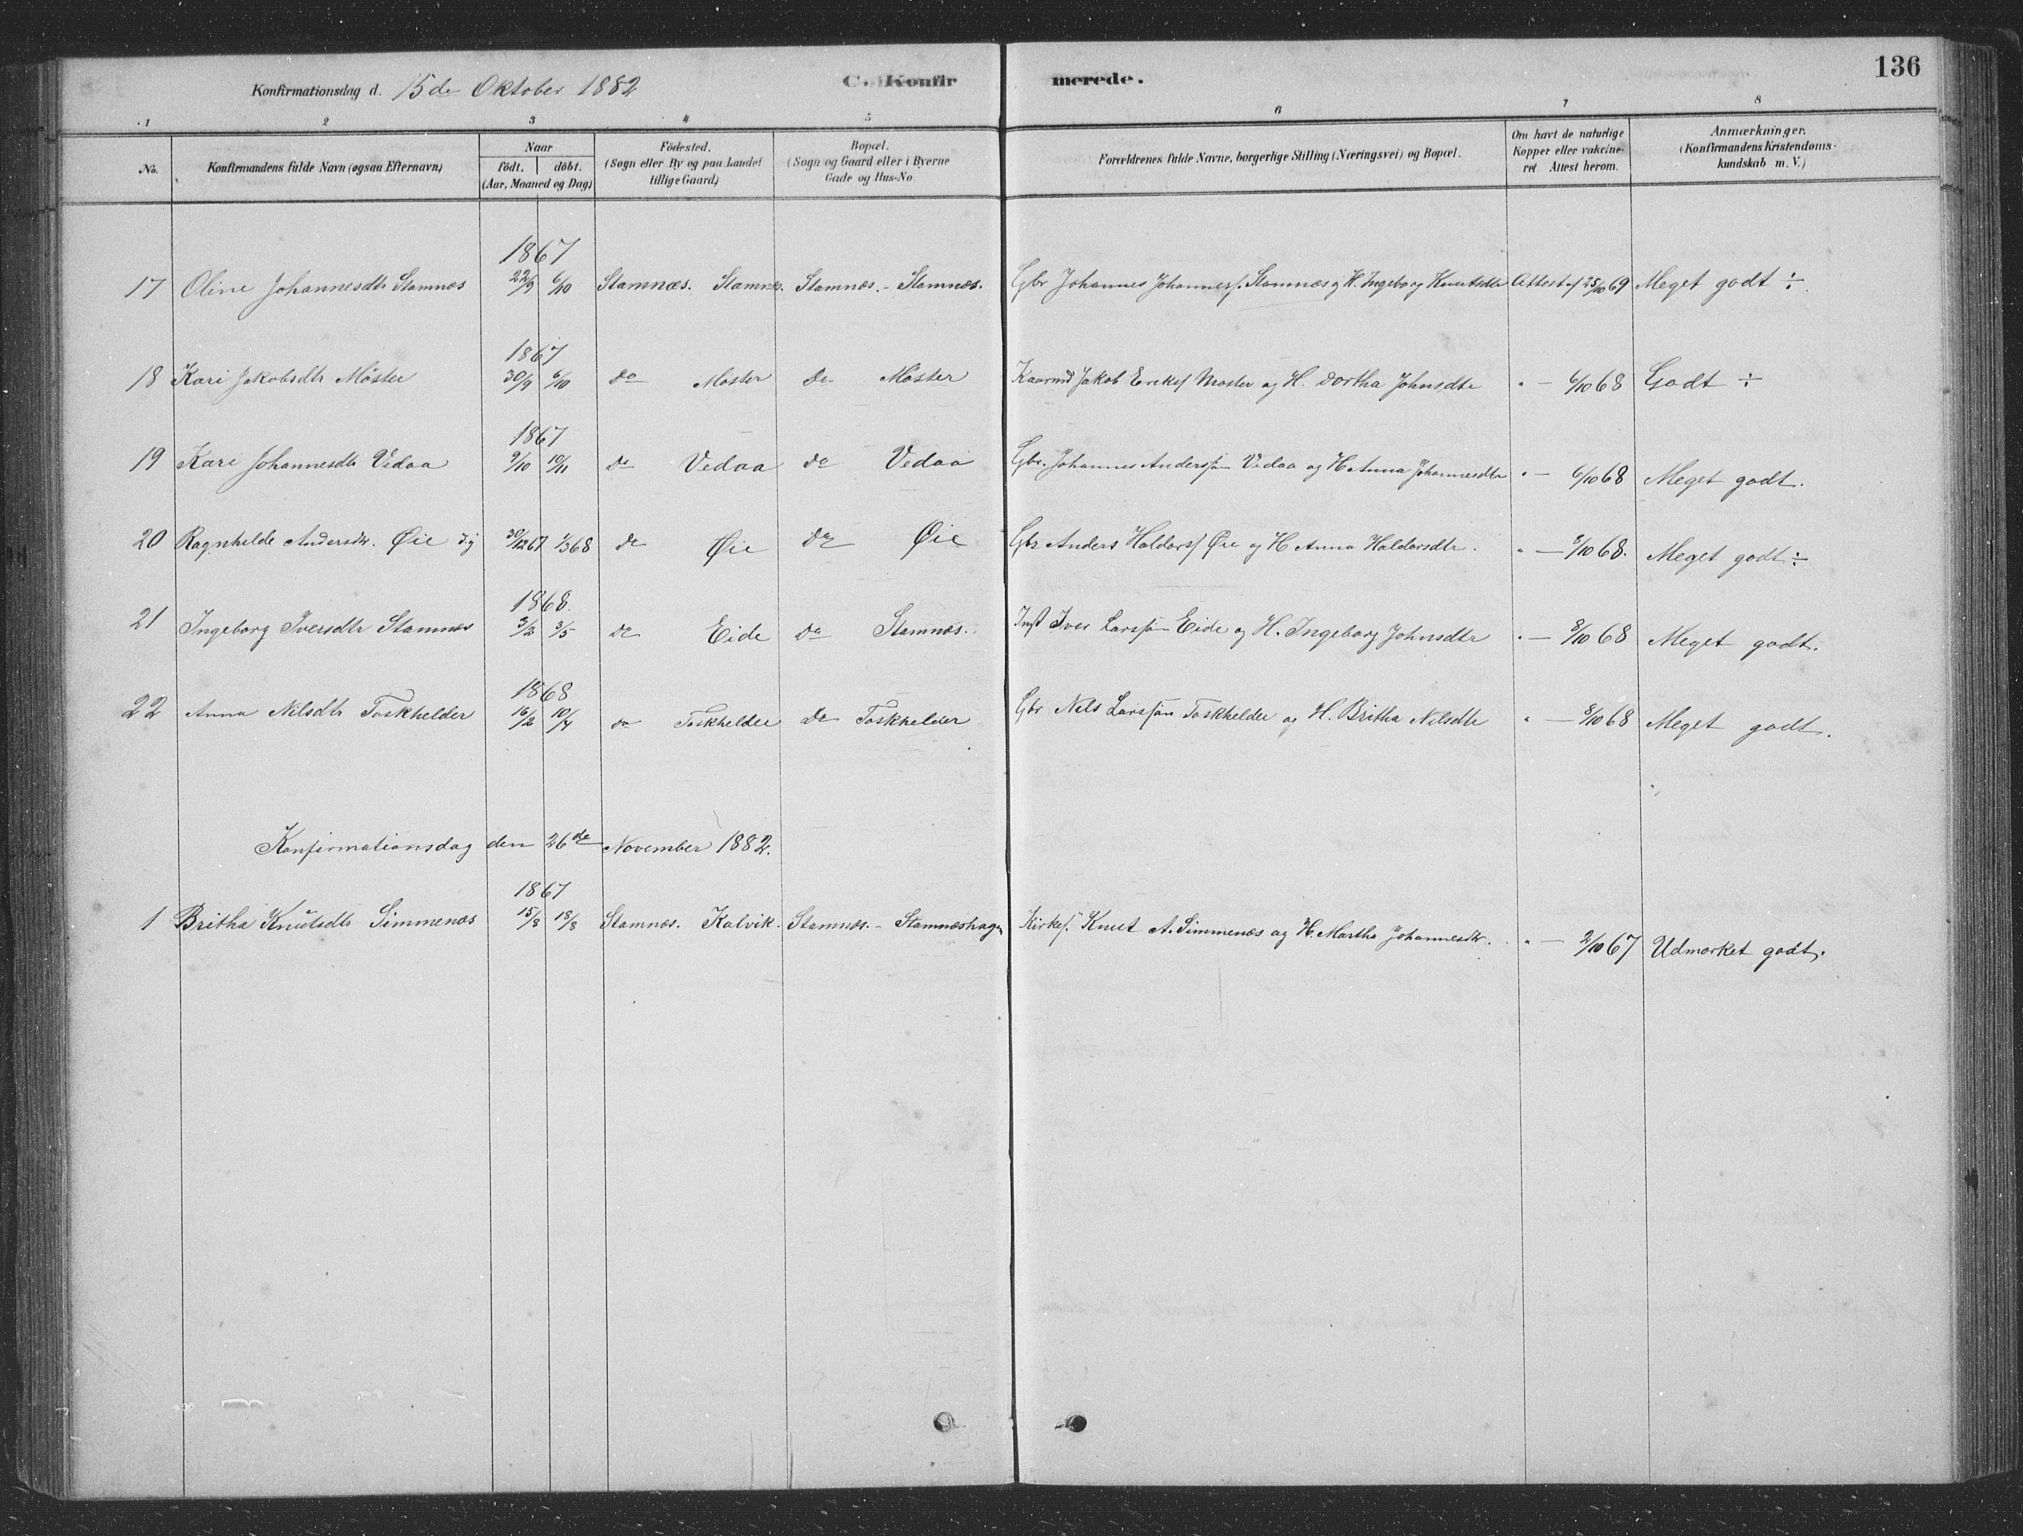 136
Konfirmationsdag d. 15de Oktober 1882 C. Konfirmerede.
1 2 3 4 5 6 7 8
No. Konfirmandens fulde Navn (ogsaa Efternavn) Naar født. døbt. (Aar, Maaned og Dag) Fødested. (Sogn eller By og paa Landet tillige Gaard) Bopæl. (Sogn og Gaard eller i Byerne Gade og Hus-No. Forældrenes fulde Navne, borgerlige Stilling (Næringsvei) og Bopæl. Om havt de naturlige Kopper eller vakcineret Attest herom. Anmærkninger. (Konfirmandens Kristendomskundskab m. V.)
1867
17 Oline Johannesdtr Stamnæs 22/9 6/10 Stamnæs. Stamnæs. Stamnæs. - Stamnæs. Gbr Johannes Johanness. Stamnæs og H. Ingeborg Knutsdtr Attest af 25/10 69 Meget godt ÷
1867
18 Kari Jakobsdtr Møster 30/9 6/10 do Møster do Møster Jakob Eriks Moster og H. Dortha Johnsdtr " — 6/10 68 Godt ÷
1867
19 Kari Johannesdtr Vedaa 9/10 10/11 do Vedaa do Vedaa Gbr. Johannes Anderssøn Vedaa og H Anna Johannesdtr " — 6/10 68 Meget godt.
20 Ragnhilde Andersdtr. Øie 30/12 67 1/3 68 do Øie do Øie Gbr Anders Haldors Øie og H Anna Haldorsdtr. " — 8/10 68. Meget godt ÷
1868
21 Ingeborg Iversdtr Stamnæs 3/2 3/5 do Eide do Stamnæs. Inst Iver Larssøn Eide og H. Ingeborg Johnsdtr " — 8/10 68 Meget godt.
1868
22 Anna Nilsdtr Toskhelder 16/2 10/4 do Toskhelder do Toskhelder Gbr Nils Larssøn Toskhelder og H. Britha Nilsdtr " — 8/10 68 Meget godt.
Konfirmationsdag den 26de November 1882.
1867
1 Britha Knutsdtr Simmenæs 15/8 18/8 Stamnæs. Kalvik. Stamnæs. - Stamnæshagen Kirkes. Knut A. Simmenæs og H. Martha Johannesdtr. " — 2/10 67 Udmærket godt.